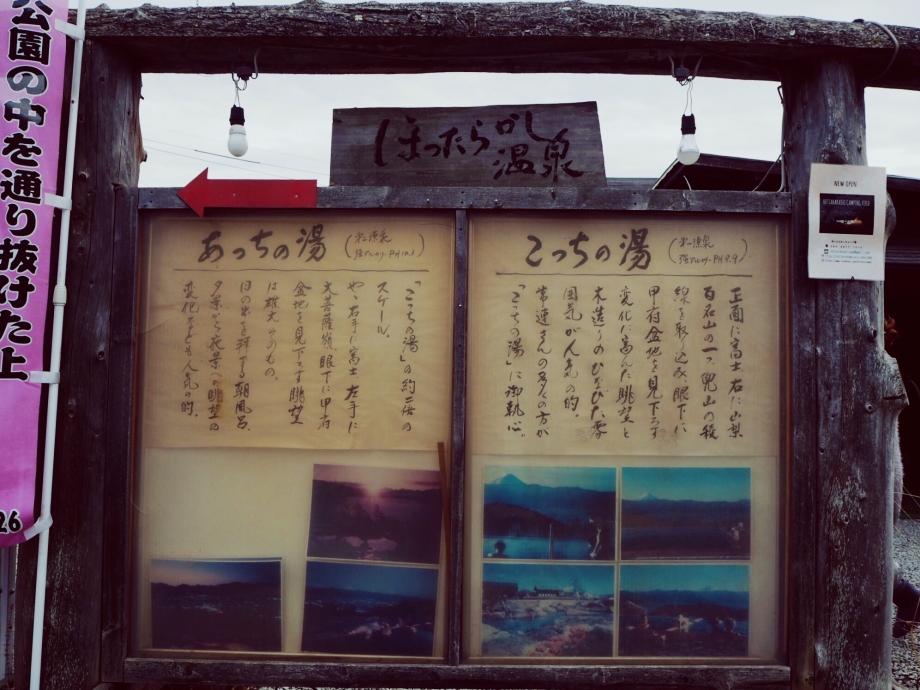 公園の中を通り抜けた上
26
ほったらかし温泉
あっちの湯
「こっちの湯」の約二倍の
スケール。
やゝ右手に富士 左手に
大菩薩嶺、眼下に甲府
盆地を見下す眺望
は雄大そのもの。
日の出を拝する朝風呂、
夕景から夜景への眺望の
変化なども人気の的。
こっちの湯
源泉
強アルカリ・PH9.9
正面に富士 右に山梨
百名山の一つ兜山の稜
線を取り込み眼下に
甲府盆地を見下ろす
変化に富んだ眺望と
木造りのひなびた雰
囲気が人気の的。
常連さんの多くの方が
「こっちの湯」に御執心。
NEW OPEN
HOTTARAKASHI CAMPING FIELD